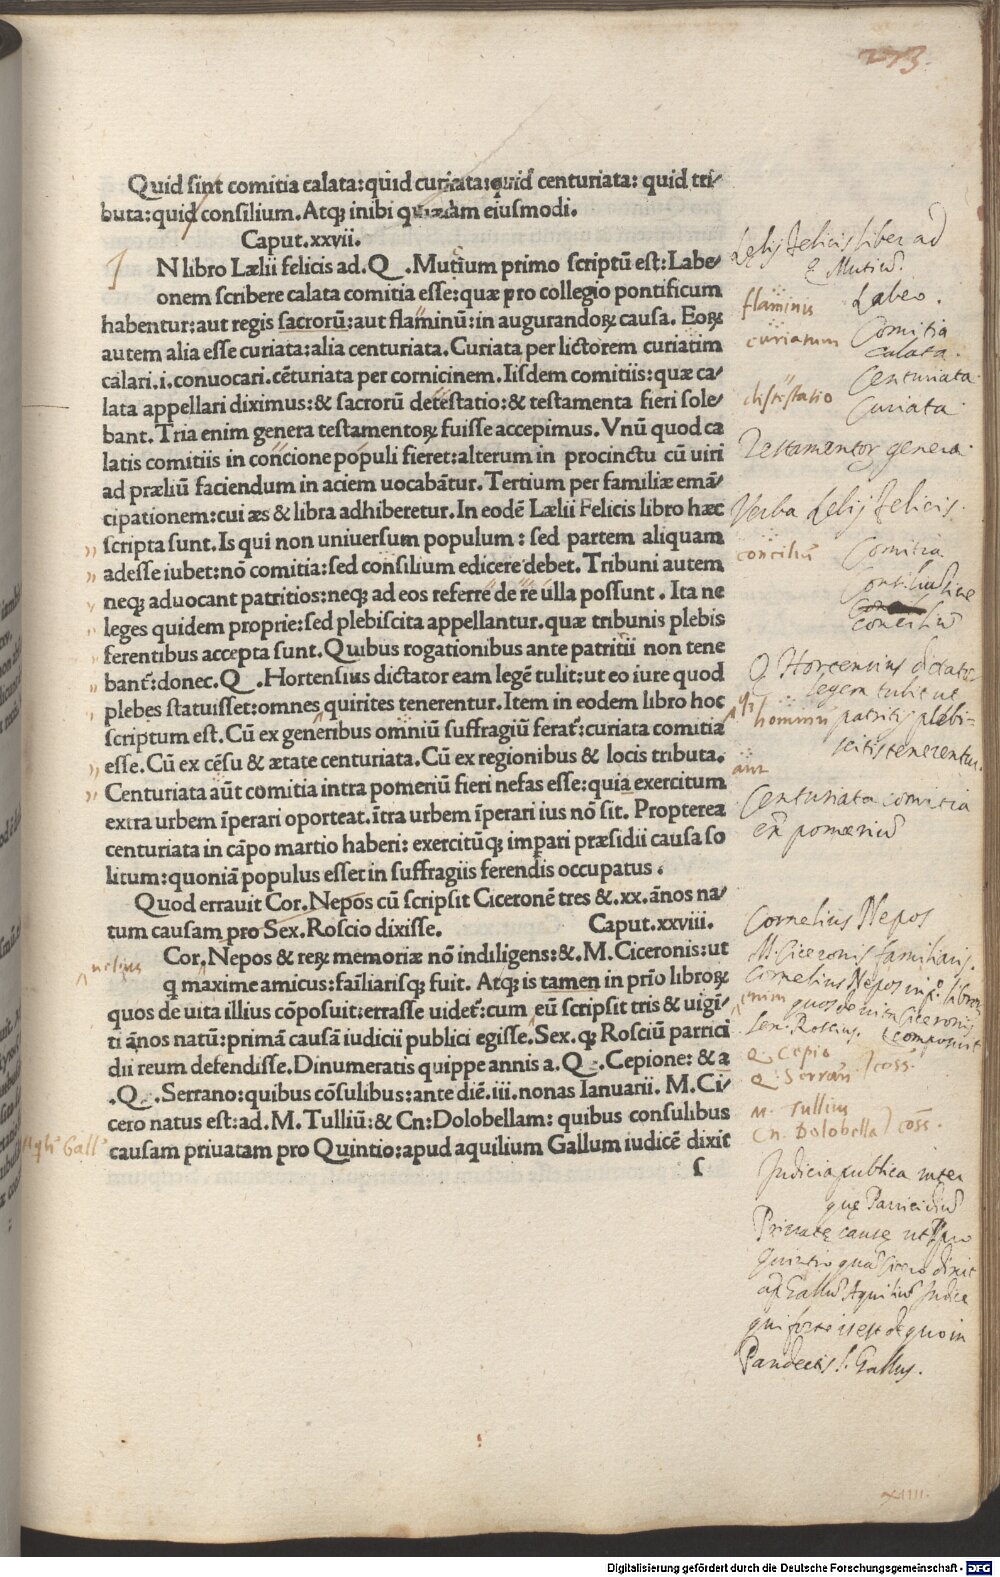 273.
Quid sint comitia calata:quid curiata:quid centuriata: quid tri⸗
buta:quid consilium.Atq; inibi quædam eiusmodi.
Caput.xxvii.
I N libro Lælii felicis ad.Q.Mutium primo scriptū est:Labe⸗
onem scribere calata comitia esse:quæ pro collegio pontificum
habentur:aut regis sacrorū:aut flaminū:in augurandoꝝ causa. Eoꝝ
autem alia esse curiata:alia centuriata.Curiata per lictorem curiatim
calari.i.conuocari.cēturiata per cornicinem.Iisdem comitiis:quæ ca⸗
lata appellari diximus:& sacrorū detestatio:& testamenta fieri sole⸗
bant.Tria enim genera testamentoꝝ fuisse accepimus.Vnū quod ca
latis comitiis in concione populi fieret:alterum in procinctu cū uiri
ad præliū faciendum in aciem uocabātur.Tertium per familiæ emā⸗
cipationem:cui æs & libra adhiberetur.In eodē Lælii Felicis libro hæc
scripta sunt.Is qui non uniuersum populum : sed partem aliquam
adesse iubet:nō comitia:sed consilium edicere debet.Tribuni autem
neq; aduocant patritios:neq; ad eos referre de re ulla possunt . Ita ne
leges quidem proprie:sed plebiscita appellantur.quæ tribunis plebis
ferentibus accepta sunt.Quibus rogationibus ante patritii non tene
bant̄:donec.Q.Hortensius dictator eam legē tulit:ut eo iure quod
plebes statuisset:omnes quirites tenerentur.Item in eodem libro hoc
scriptum est.Cū ex generibus omniū suffragiū ferat̄:curiata comitia
esse.Cū ex cēsu & ætate centuriata.Cū ex regionibus & locis tributa.
Centuriata aūt comitia intra pomeriū fieri nefas esse:quia exercitum
extra urbem īperari oporteat.ītra urbem īperari ius nō sit. Propterea
centuriata in cāpo martio haberi: exercitūq; impari præsidii causa so
litum:quoniā populus esset in suffragiis ferendis occupatus .
Quod errauit Cor.Nepos cū scripsit Ciceronē tres &.xx.ānos na⸗
tum causam pro Sex.Roscio dixisse. Caput.xxviii.
Cor.Nepos & reꝝ memoriæ nō indiligens:&.M.Ciceronis:ut
q maxime amicus:faīliarisq; fuit. Atq; is tamen in prīo libroꝝ
quos de uita illius cōposuit:errasse uidet̄:cum eū scripsit tris & uigī⸗
ti ānos natū:primā causā iudicii publici egisse.Sex.q; Rosciū parrici
dii reum defendisse.Dinumeratis quippe annis a.Q.Cepione: & a
.Q.Serrano:quibus cōsulibus:ante diē.iii.nonas Ianuarii. M.Ci⸗
cero natus est:ad.M.Tulliū:& Cn:Dolobellam: quibus consulibus
causam priuatam pro Quintio:apud aquilium Gallum iudicē dixit
f
Lelij Felicis liber ad
Q Mutiū.
flaminis
Labeo.
curiatum
Comitia
calata.
Centuriata
detestatio
Curiata
Testamentoꝝ genera
Verba Lelij Felicis.
conciliū
Comitia
Consiliū siue
conciliū
Q Hortensius dictator
legem tulit ut
hominū
patritij plebi⸗
scitis tenerentur.
aut
Centuriata comitia
pomœriū
Cornelius Nepos
M. Ciceronis familiaris.
Cornelius Nepos in pº libroꝝ
quos de uita Ciceronis
composuit
melius
enim
Sex. Roscius
Q. Cepio
Q. Serran⁹ ) coss.
M. Tullius
Cn. Dolobella ) coss.
Aqli⁹ Gall⁹
Judicia publica inter
quę Parricidiū
Priuatę causę ut pro
Quintio quā Cicero dixit
ap Gallū Aquiliū Judice
qui forte is est de quo in
Pandectis l. Gallus.
xiiii.
Digitalisierung gefördert durch die Deutsche Forschungsgemeinschaft - DFG